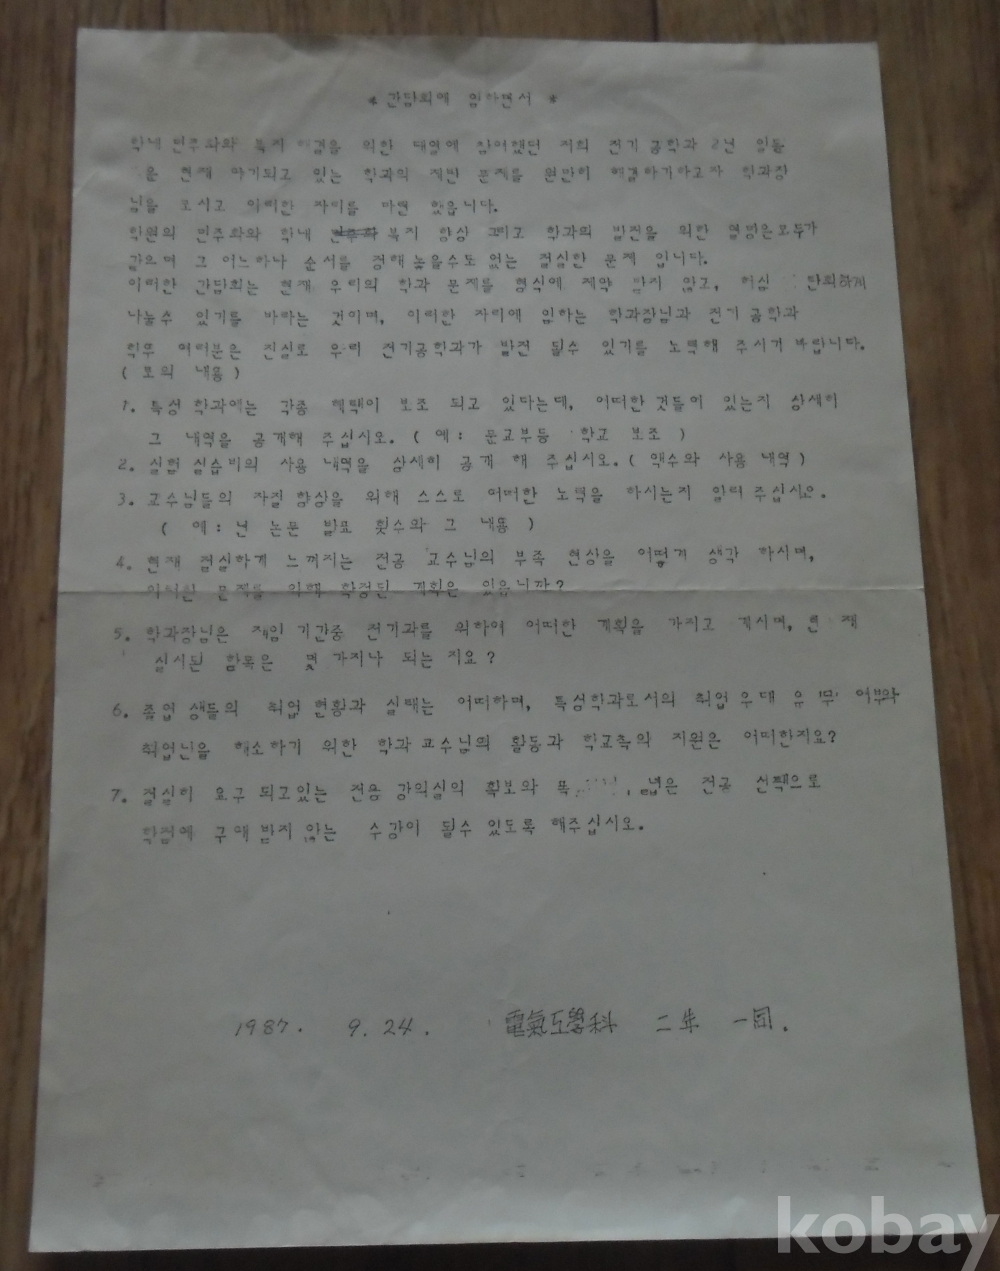 * 간담회에 임하면서 *
학내 민주화와 복지 해결을 위한 대열에 참여했던 저희 전기 공학과 2년 일동
은 현재 야기되고 있는 학과의 제반 문제를 원만히 해결하기하고자 학과장
님을 모시고 이러한 자리를 마련 했읍니다.
학원의 민주화와 학내 복지 향상 그리고 학과의 발전을 위한 열망은모두가
같으며 그 어느하나 순서를 정해 놓을수도 없는 절실한 문제 입니다.
이러한 간담회는 현재 우리의 학과 문제를 형식에 제약 받지 않고, 허심 탄회하게
나눌수 있기를 바라는 것이며, 이러한 자리에 임하는 학과장님과 전기 공학과
학우 여러분은 진실로 우리 전기공학과가 발전 될수 있기를 노력해 주시기 바랍니다.
( 토의 내용 )
1. 특성 학과에는 각종 혜택이 보조 되고 있다는데, 어떠한 것들이 있는지 상세히
그 내역을 공개해 주십시오. ( 예: 문교부등 학교 보조 )
2. 실험 실습비의 사용 내역을 상세히 공개 해 주십시오. ( 액수와 사용 내역 )
3. 교수님들의 자질 향상을 위해 스스로 어떠한 노력을 하시는지 알려 주십시오.
( 예: 년 논문 발표 횟수와 그 내용 )
4. 현재 절실하게 느껴지는 전공 교수님의 부족 현상을 어떻게 생각 하시며,
이러한 문제를 위해 확정된 계획은 있읍니까?
5. 학과장님은 재임 기간중 전기과를 위하여 어떠한 계획을 가지고 계시며, 현 재
실시된 항목은 몇 가지나 되는 지요?
6. 졸업 생들의 취업 현황과 실태는 어떠하며, 특성학과로서의 취업 우대 유 무 여부와
취업난을 해소하기 위한 학과 교수님의 활동과 학교측의 지원은 어떠한지요?
7. 절실히 요구 되고있는 전용 강의실의 확보와 폭 넓은 전공 선택으로
학점에 구애 받지 않는 수강이 될수 있도록 해주십시오.
1987. 9. 24. 電氣工學科 二年 一同.
kobay